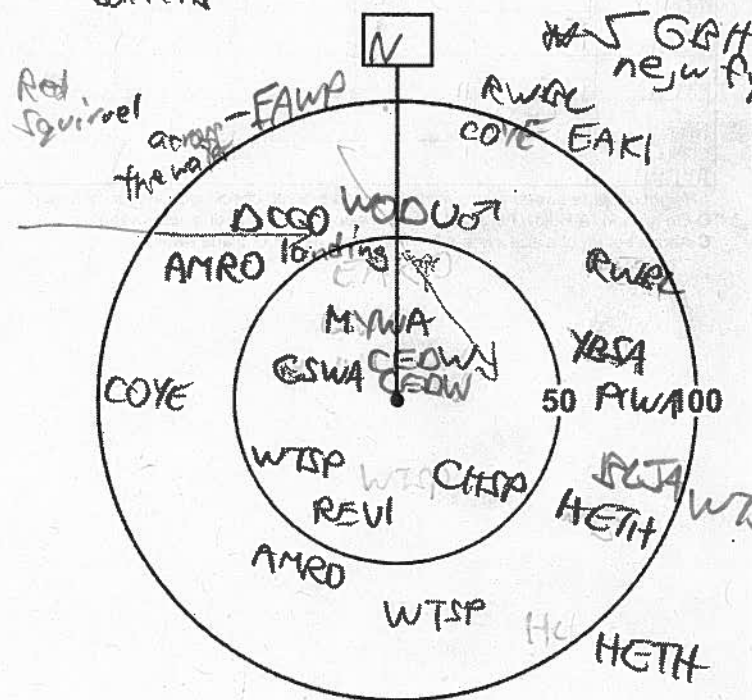 N
GBH
Red
Squirrel
across
the water
- EAWP
RWBL
COYE EAKI
DCCO WODU♂
AMRO landing
RWBL
MYWA
CEDW
CSWA CEDW
YBSA
COYE
50 100
WTSP
CHSP
BLJA
HETH
REVI
AMRO
WTSP
HETH